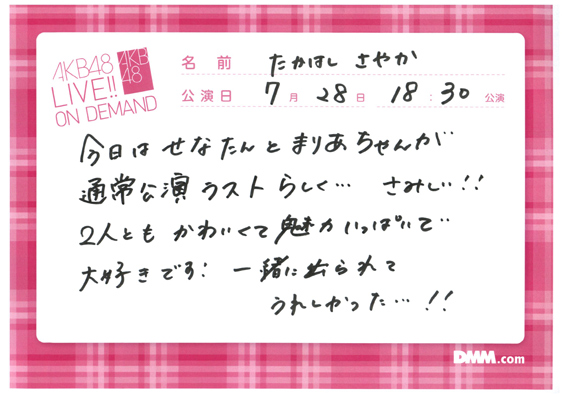 AKB48
LIVE!!
ON DEMAND
AKB
48
名前 たかはし さやか
公演日 7月 28日 18:30 公演
今日は せなたんと まりあちゃんが
通常公演 ラスト らしく… さみしい!!
2人とも かわいくて 魅力 いっぱいで
大好きです! 一緒に出られて
うれしかった…!!
DMM.com